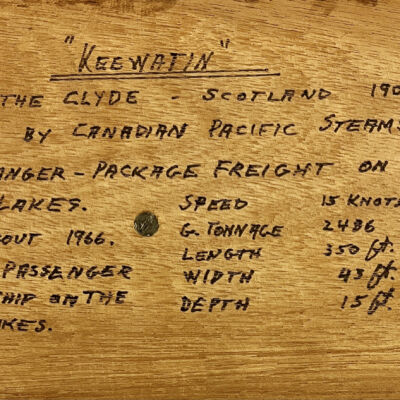 "KEEWATIN"
THE CLYDE - SCOTLAND 190
BY CANADIAN PACIFIC STEAMS
ANGER - PACKAGE FREIGHT ON
LAKES. SPEED 15 KNOTS
OUT 1966. G. TONNAGE 2486
PASSENGER LENGTH 350 ft.
HIP ON THE WIDTH 43 ft.
KES. DEPTH 15 ft.